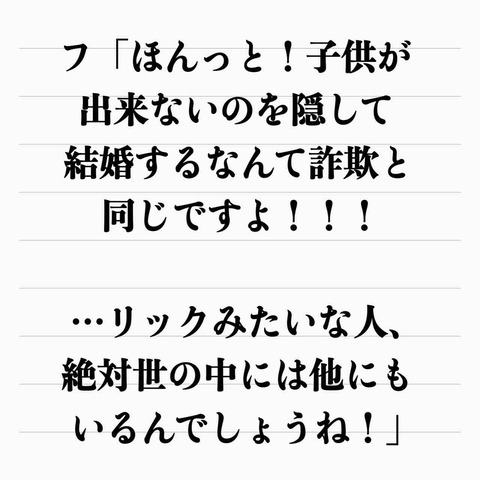 フ「ほんっと！子供が
出来ないのを隠して
結婚するなんて詐欺と
同じですよ！！！
…リックみたいな人、
絶対世の中には他にも
いるんでしょうね！」